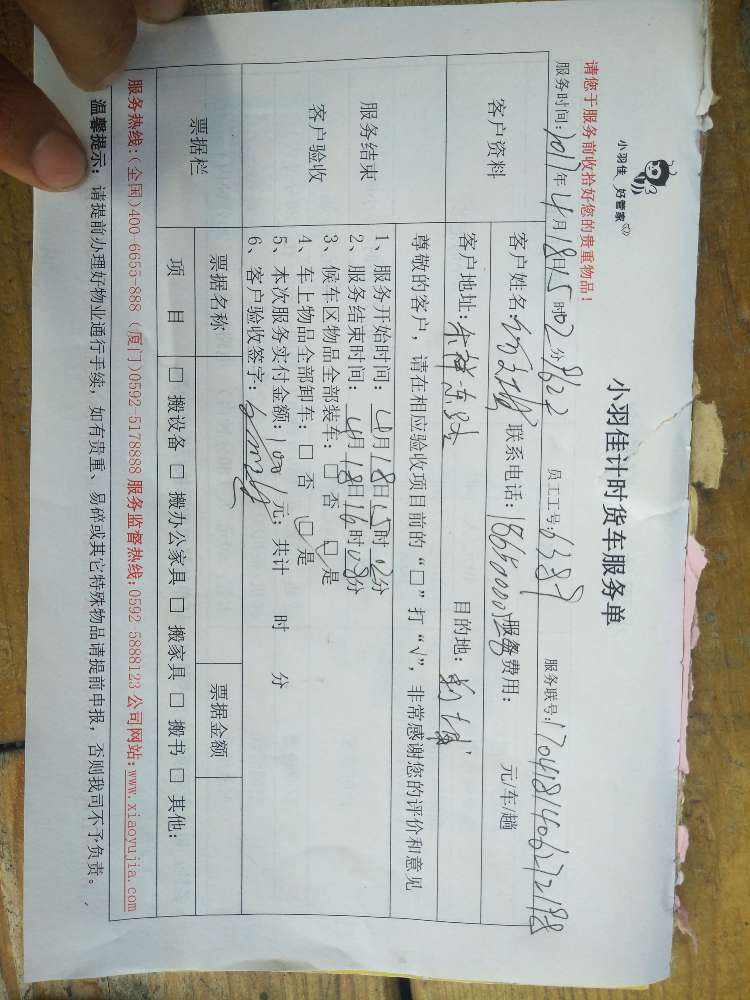 小羽佳 好管家
小羽佳计时货车服务单
请您于服务前收拾好您的贵重物品!
服务时间:2017年4月18日15时02分 员工工号: 服务联号:
客户资料
客户姓名: 联系电话: 服务费用: 元/车/趟
客户地址: 目的地:
服务结束
客户验收
尊敬的客户，请在相应验收项目前的“□”打“√”，非常感谢您的评价和意见
1、服务开始时间: 4月18日15时02分
2、服务结束时间: 4月18日16时08分
3、候车区物品全部装车: □ 否 □ 是
4、车上物品全部卸车: □ 否 □ 是
5、本次服务实付金额: 100元; 共计 时 分
6、客户验收签字:
票据栏
票据名称 票据金额
项 目 □ 搬设备 □ 搬办公家具 □ 搬家具 □ 搬书 □ 其他:
服务热线:(全国)400 6655-888 (厦门)0592-5178888 服务监督热线:0592 5888123 公司网站:www.xiaoyujia.com
温馨提示: 请提前办理好物业通行手续，如有贵重、易碎或其它特殊物品请提前申报，否则我司不予负责。